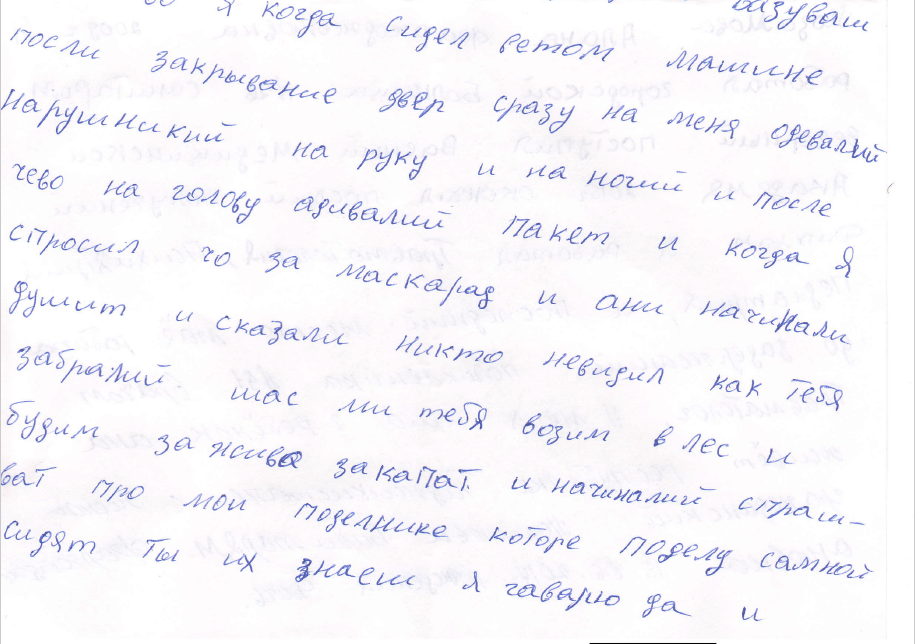 я когда сидел ветом машине
посли закрывание двер сразу на меня одевалий
нарушникий на руку и на ногий и после
чево на голову адивалий пакет и когда я
спросил чо за маскарад и ани начинали
душит и сказали никто невидил как тебя
забралий шас ми тебя возим в лес и
будим за живо закапат и начиналий спраш-
ват про мои поделнике которе поделу самной
сидят ты их знаеш я гаварю да и